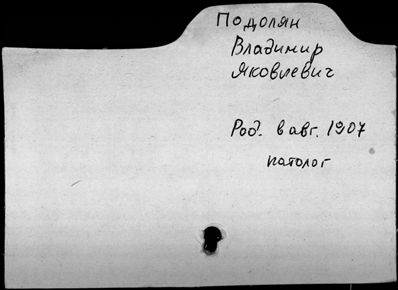 Подолян
Владимир
Яковлевич
Род. в авг. 1907
патолог